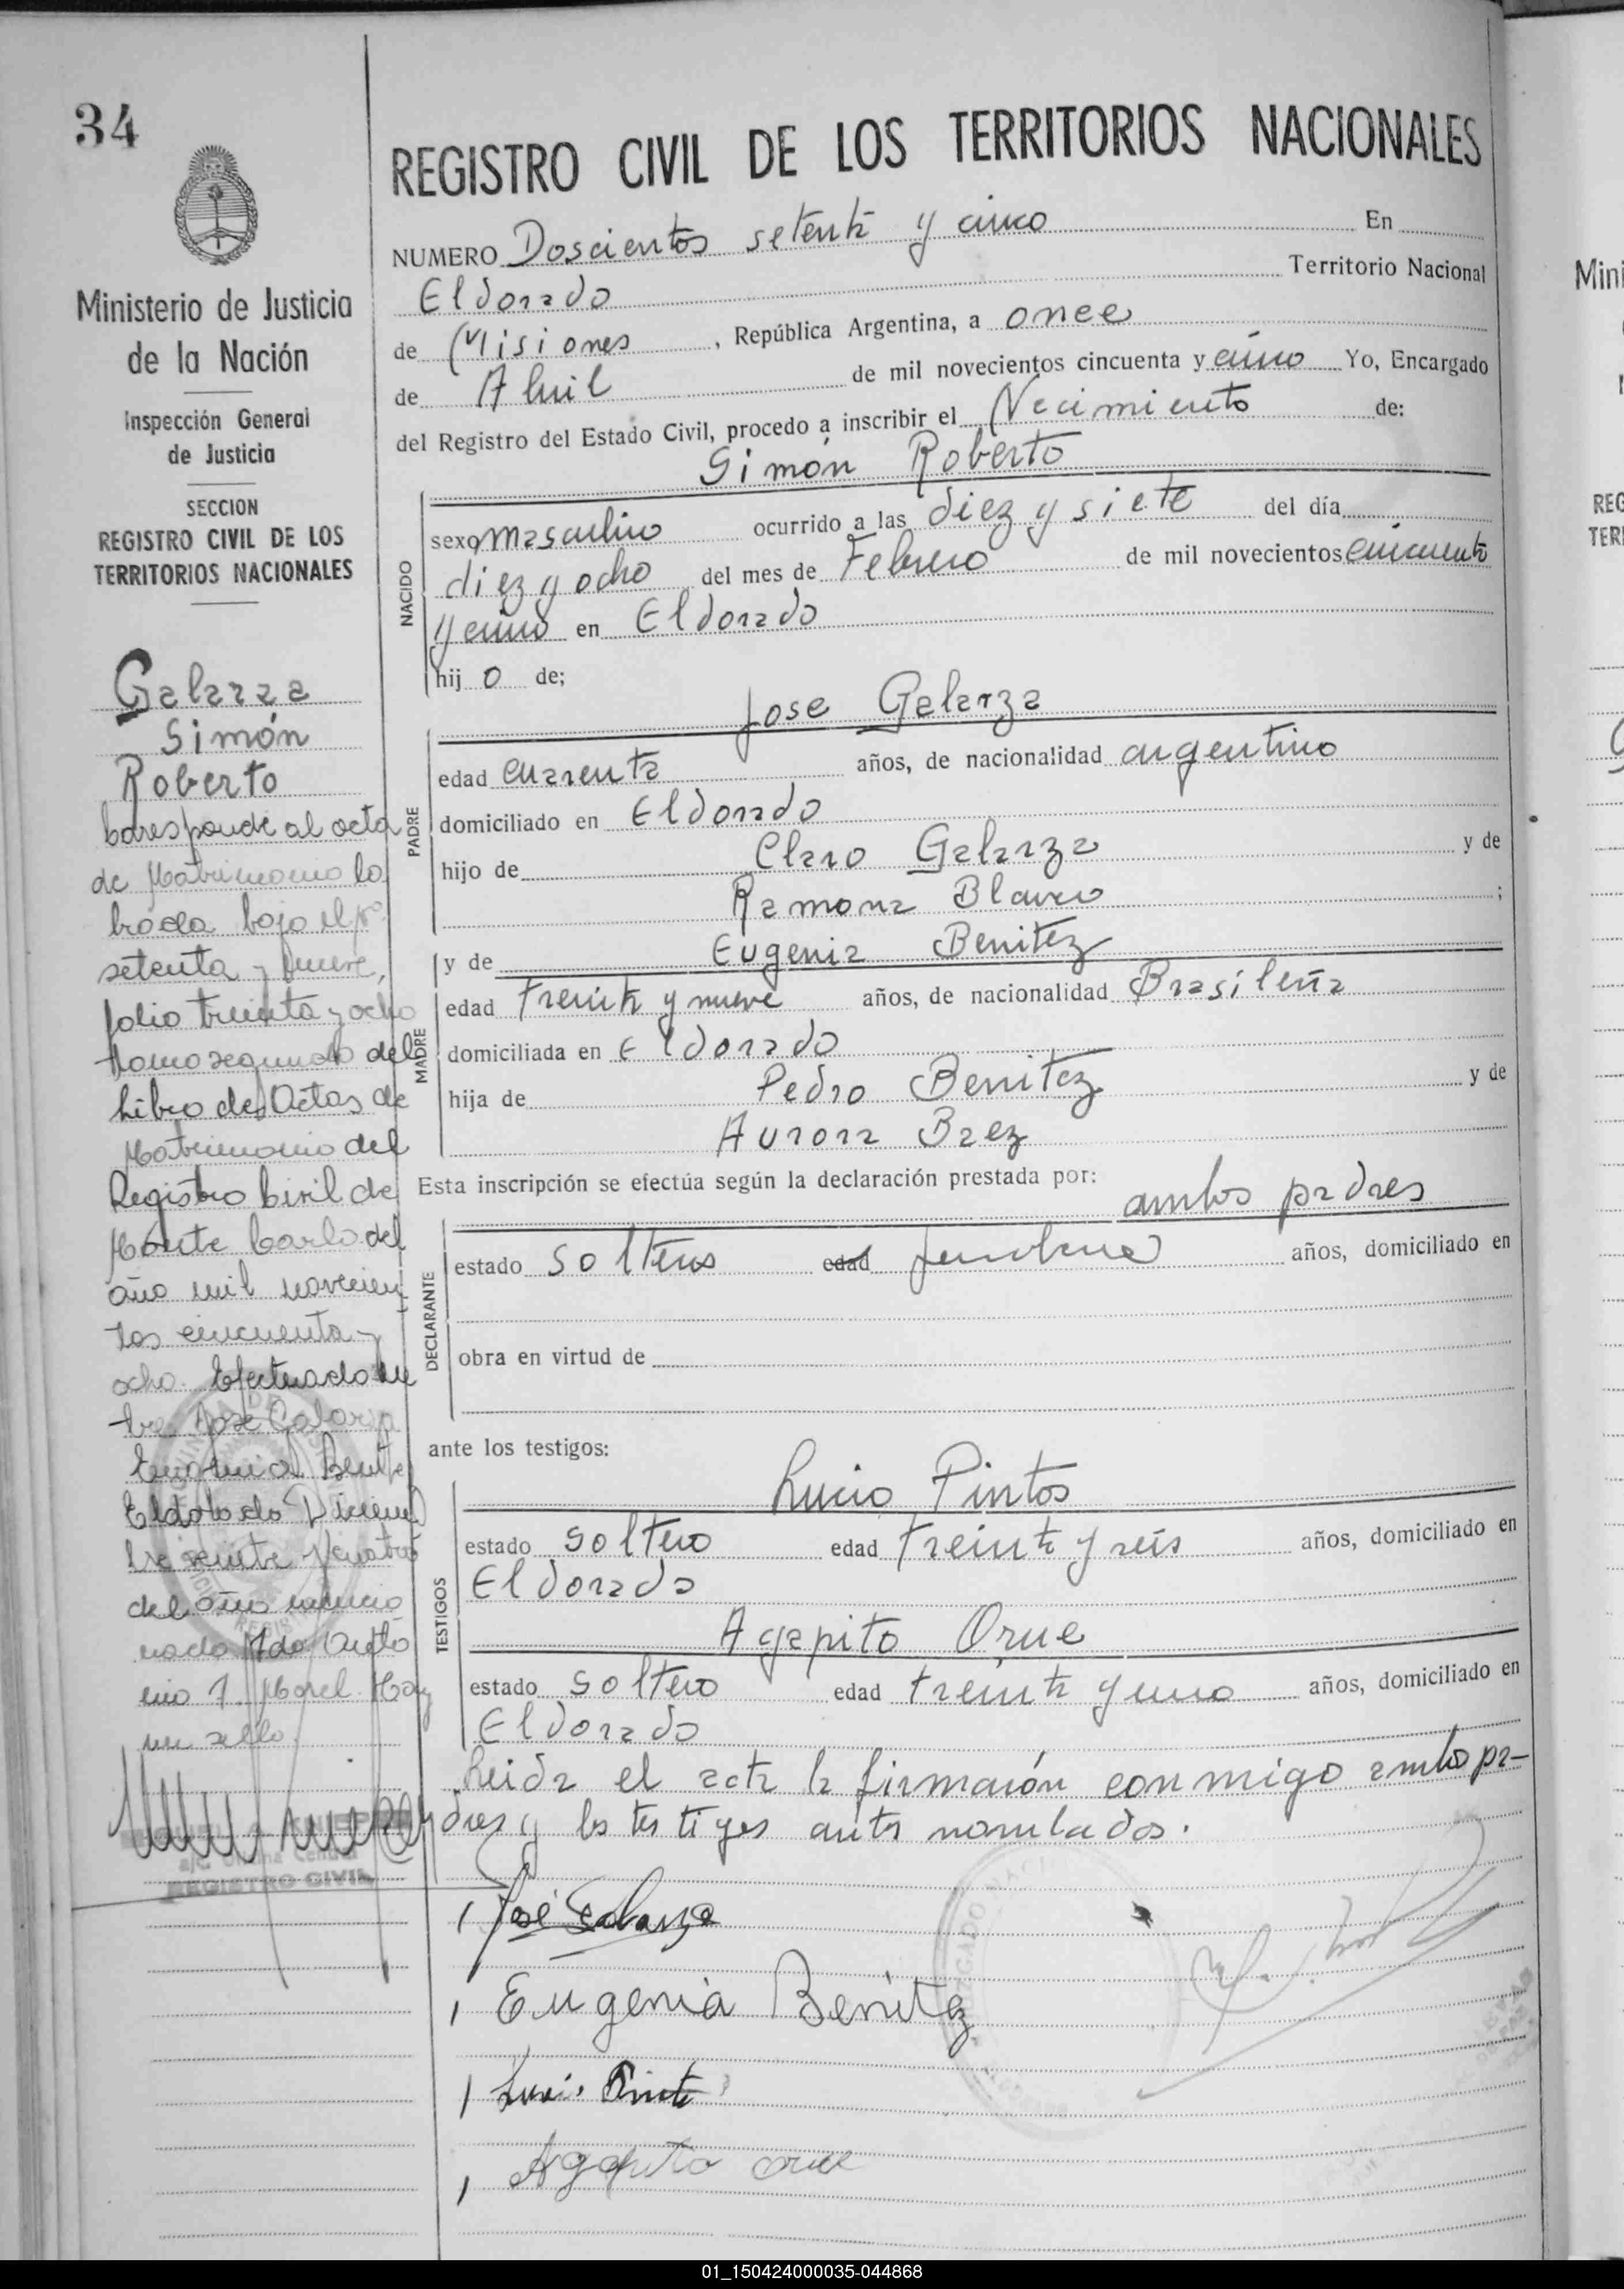 34
Ministerio de Justicia
de la Nación
Inspección General
de Justicia
SECCION
REGISTRO CIVIL DE LOS
TERRITORIOS NACIONALES
Galarza
Simón
Roberto
Corresponde al acta
de Matrimonio la
brada bajo el Nº
setenta y nueve,
folio treinta y ocho
tomo segundo del
Libro de Actas de
Matrimonio del
Registro Civil de
Monte Carlo del
año mil novecien
tos cincuenta y
ocho. Efectuado en
tre José Galarza
Eugenia Benite
Eldorado Diciem
bre veinte y cuatro
del año mencio
nado Fdo
Morel Hay
un sello.
REGISTRO CIVIL
REGISTRO CIVIL DE LOS TERRITORIOS NACIONALES
NUMERO Doscientos setenta y cinco En
Eldorado Territorio Nacional
de Misiones, República Argentina, a once
de Abril de mil novecientos cincuenta y cinco Yo, Encargado
del Registro del Estado Civil, procedo a inscribir el Nacimiento de:
Simón Roberto
NACIDO
sexo masculino ocurrido a las diez y siete del día
diez y ocho del mes de Febrero de mil novecientos cincuenta
y cinco en Eldorado
hij o de;
Jose Galarza
PADRE
edad cuarenta años, de nacionalidad argentino
domiciliado en Eldorado
hijo de Claro Galarza y de
Ramona Blanco ;
y de Eugenia Benitez
MADRE
edad Treinta y nueve años, de nacionalidad Brasileña
domiciliada en Eldorado
hija de Pedro Benitez y de
Aurora Baez
Esta inscripción se efectúa según la declaración prestada por:
ambos padres
DECLARANTE
estado solteros edad años, domiciliado en
obra en virtud de
ante los testigos:
Lucio Pintos
TESTIGOS
estado soltero edad treinta y seis años, domiciliado en
Eldorado
Agapito Orue
estado soltero edad treinta y uno años, domiciliado en
Eldorado
Leida el acta la firmarón conmigo ambo pa-
dres y los testigos antes nombrados.
José Galarza
Eugenia Benitez
Agapito orue
01_150424000035-044868